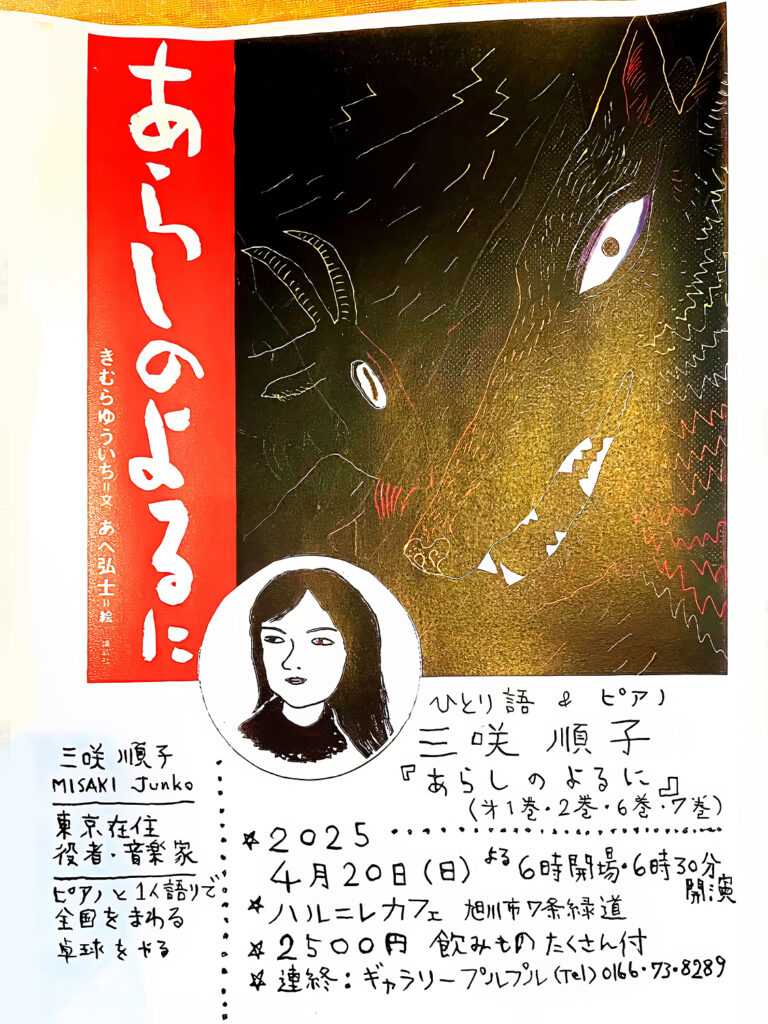 あらしのよるに
きむらゆういち=文 あべ弘士=絵
ひとり語 & ピアノ
三咲 順子
『あらしのよるに』
(才1巻・2巻・6巻・7巻)
三咲 順子
MISAKI Junko
東京在住
役者・音楽家
ピアノと1人語りで
全国をまわる
卓球をやる
☆2025
4月20日(日) よる6時開場・6時30分
開演
☆ハルニレカフェ 旭川市7条緑道
☆2500円 飲みものたくさん付
☆連終:ギャラリープルプル(Tel)0166・73・8289